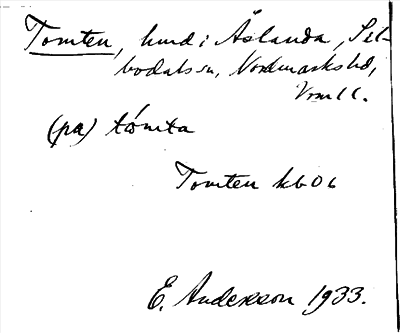 Tomten, hmd i Åslanda, Sil-
bodals sn, Nordmarks hd,
Vrml l.
(på) tómta
Tomten kb 06
E. Andersson 1933.